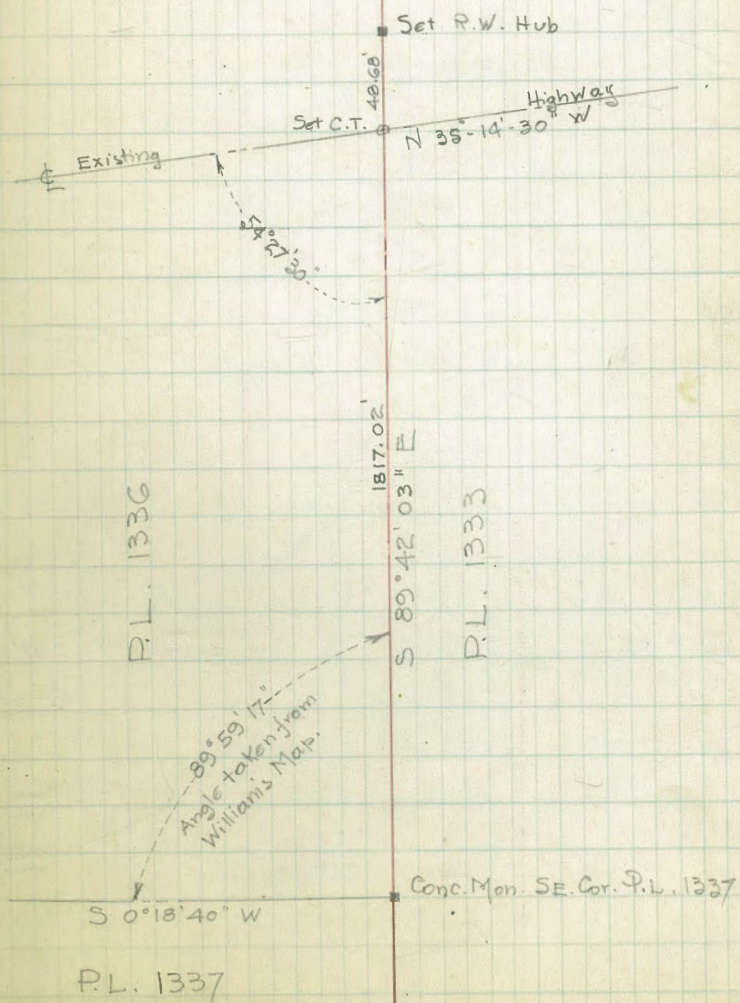 Set R.W. Hub
48.68'
Highway
Set C.T.
N 35°-14'-30" W
Existing
℄
54°27'30"
1817.02'
S 89°42'03" E
P.L. 1336
P.L. 1333
89°59'17"
Angle taken from
William's Map.
Conc. Mon. SE. Cor. P.L. 1337
S 0°18'40" W
P.L. 1337